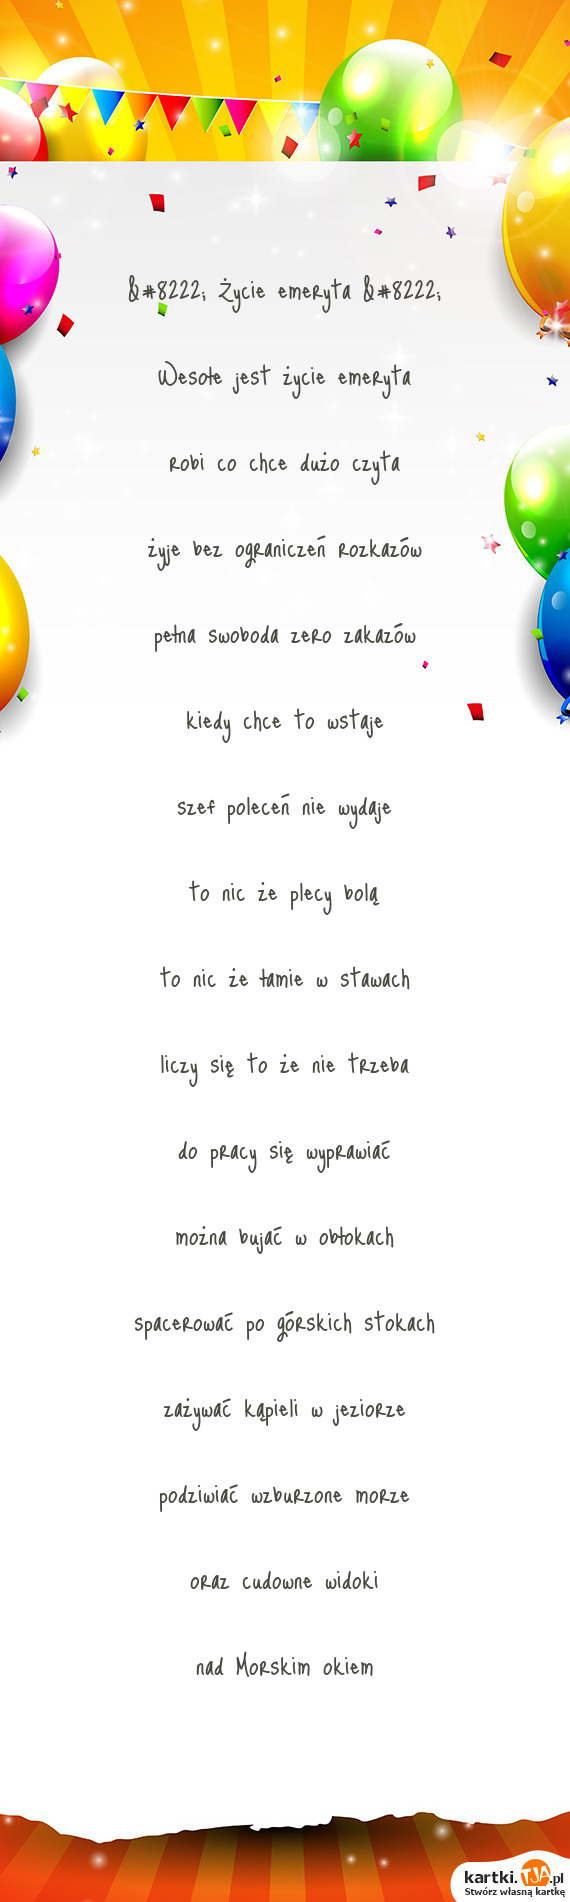 &#8222; Życie emeryta &#8222;
Wesołe jest życie emeryta
robi co chce dużo czyta
żyje bez ograniczeń rozkazów
pełna swoboda zero zakazów
kiedy chce to wstaje
szef poleceń nie wydaje
to nic że plecy bolą
to nic że łamie w stawach
liczy się to że nie trzeba
do pracy się wyprawiać
można bujać w obłokach
spacerować po górskich stokach
zażywać kąpieli w jeziorze
podziwiać wzburzone morze
oraz cudowne widoki
nad Morskim okiem
kartki.TJA.pl
Stwórz własną kartkę